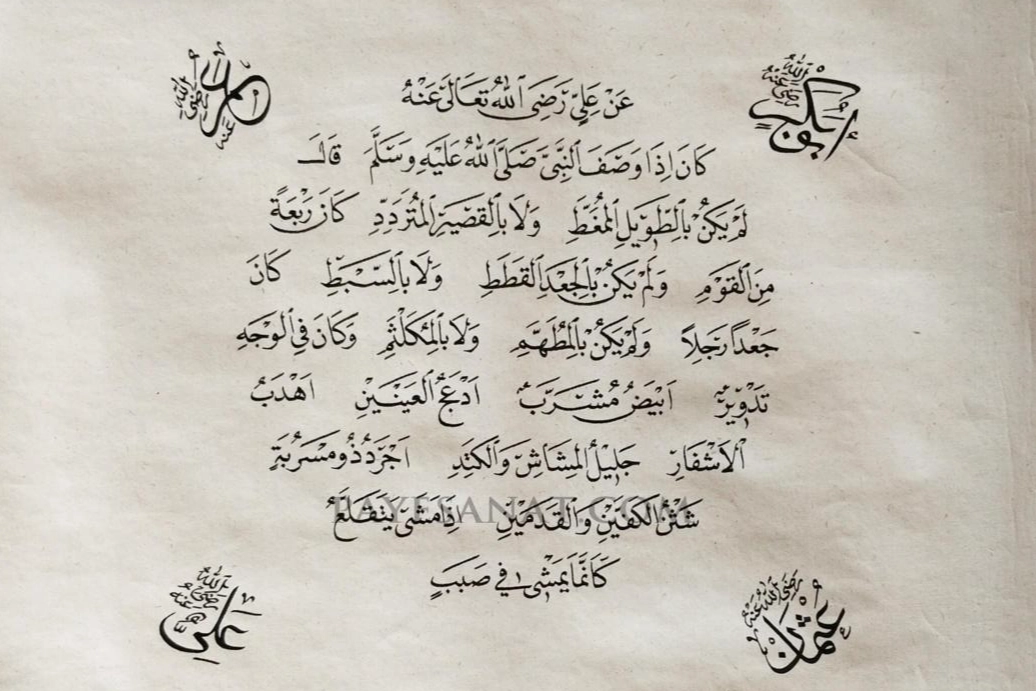 ابوبكر رضي الله عنه
عمر رضي الله عنه
عَنْ عَلِيٍّ رَضِىَ اللهُ تَعَالَى عَنْهُ
كَانَ اِذَا وَصَفَ النَّبِىَّ صَلَّى اللهُ عَلَيْهِ وَسَلَّمَ قَالَ
لَمْ يَكُنْ بِالطَّوِيلِ الْمُمَّغَطِّ وَلَا بِالْقَصِيرِ الْمُتَرَدِّدِ كَانَ رَبْعَةً
مِنَ الْقَوْمِ وَلَمْ يَكُنْ بِالْجَعْدِ الْقَطَطِ وَلَا بِالسَّبِطِ كَانَ
جَعْدًا رَجِلًا وَلَمْ يَكُنْ بِالْمُطَهَّمِ وَلَا بِالْمُكَلْثَمِ وَكَانَ فِي الْوَجْهِ
تَدْوِيرٌ اَبْيَضُ مُشْرَبٌ اَدْعَجُ الْعَيْنَيْنِ اَهْدَبُ
الْاَشْفَارِ جَلِيلُ الْمُشَاشِ وَالْكَتَدِ اَجْرَدُ ذُو مَسْرُبَةٍ
شَثْنُ الْكَفَّيْنِ وَالْقَدَمَيْنِ اِذَا مَشَى يَتَقَلَّعُ
PAYESANAT.COM
كَاَنَّمَا يَمْشِى فِي صَبَبٍ
عثمان رضي الله عنه
علي رضي الله عنه